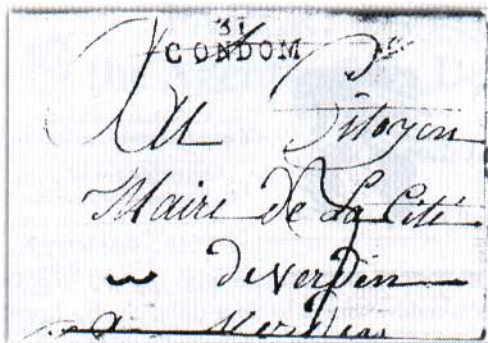 31
CONDOM
Au Citoyen
Maire De La Cité
de verdun
a